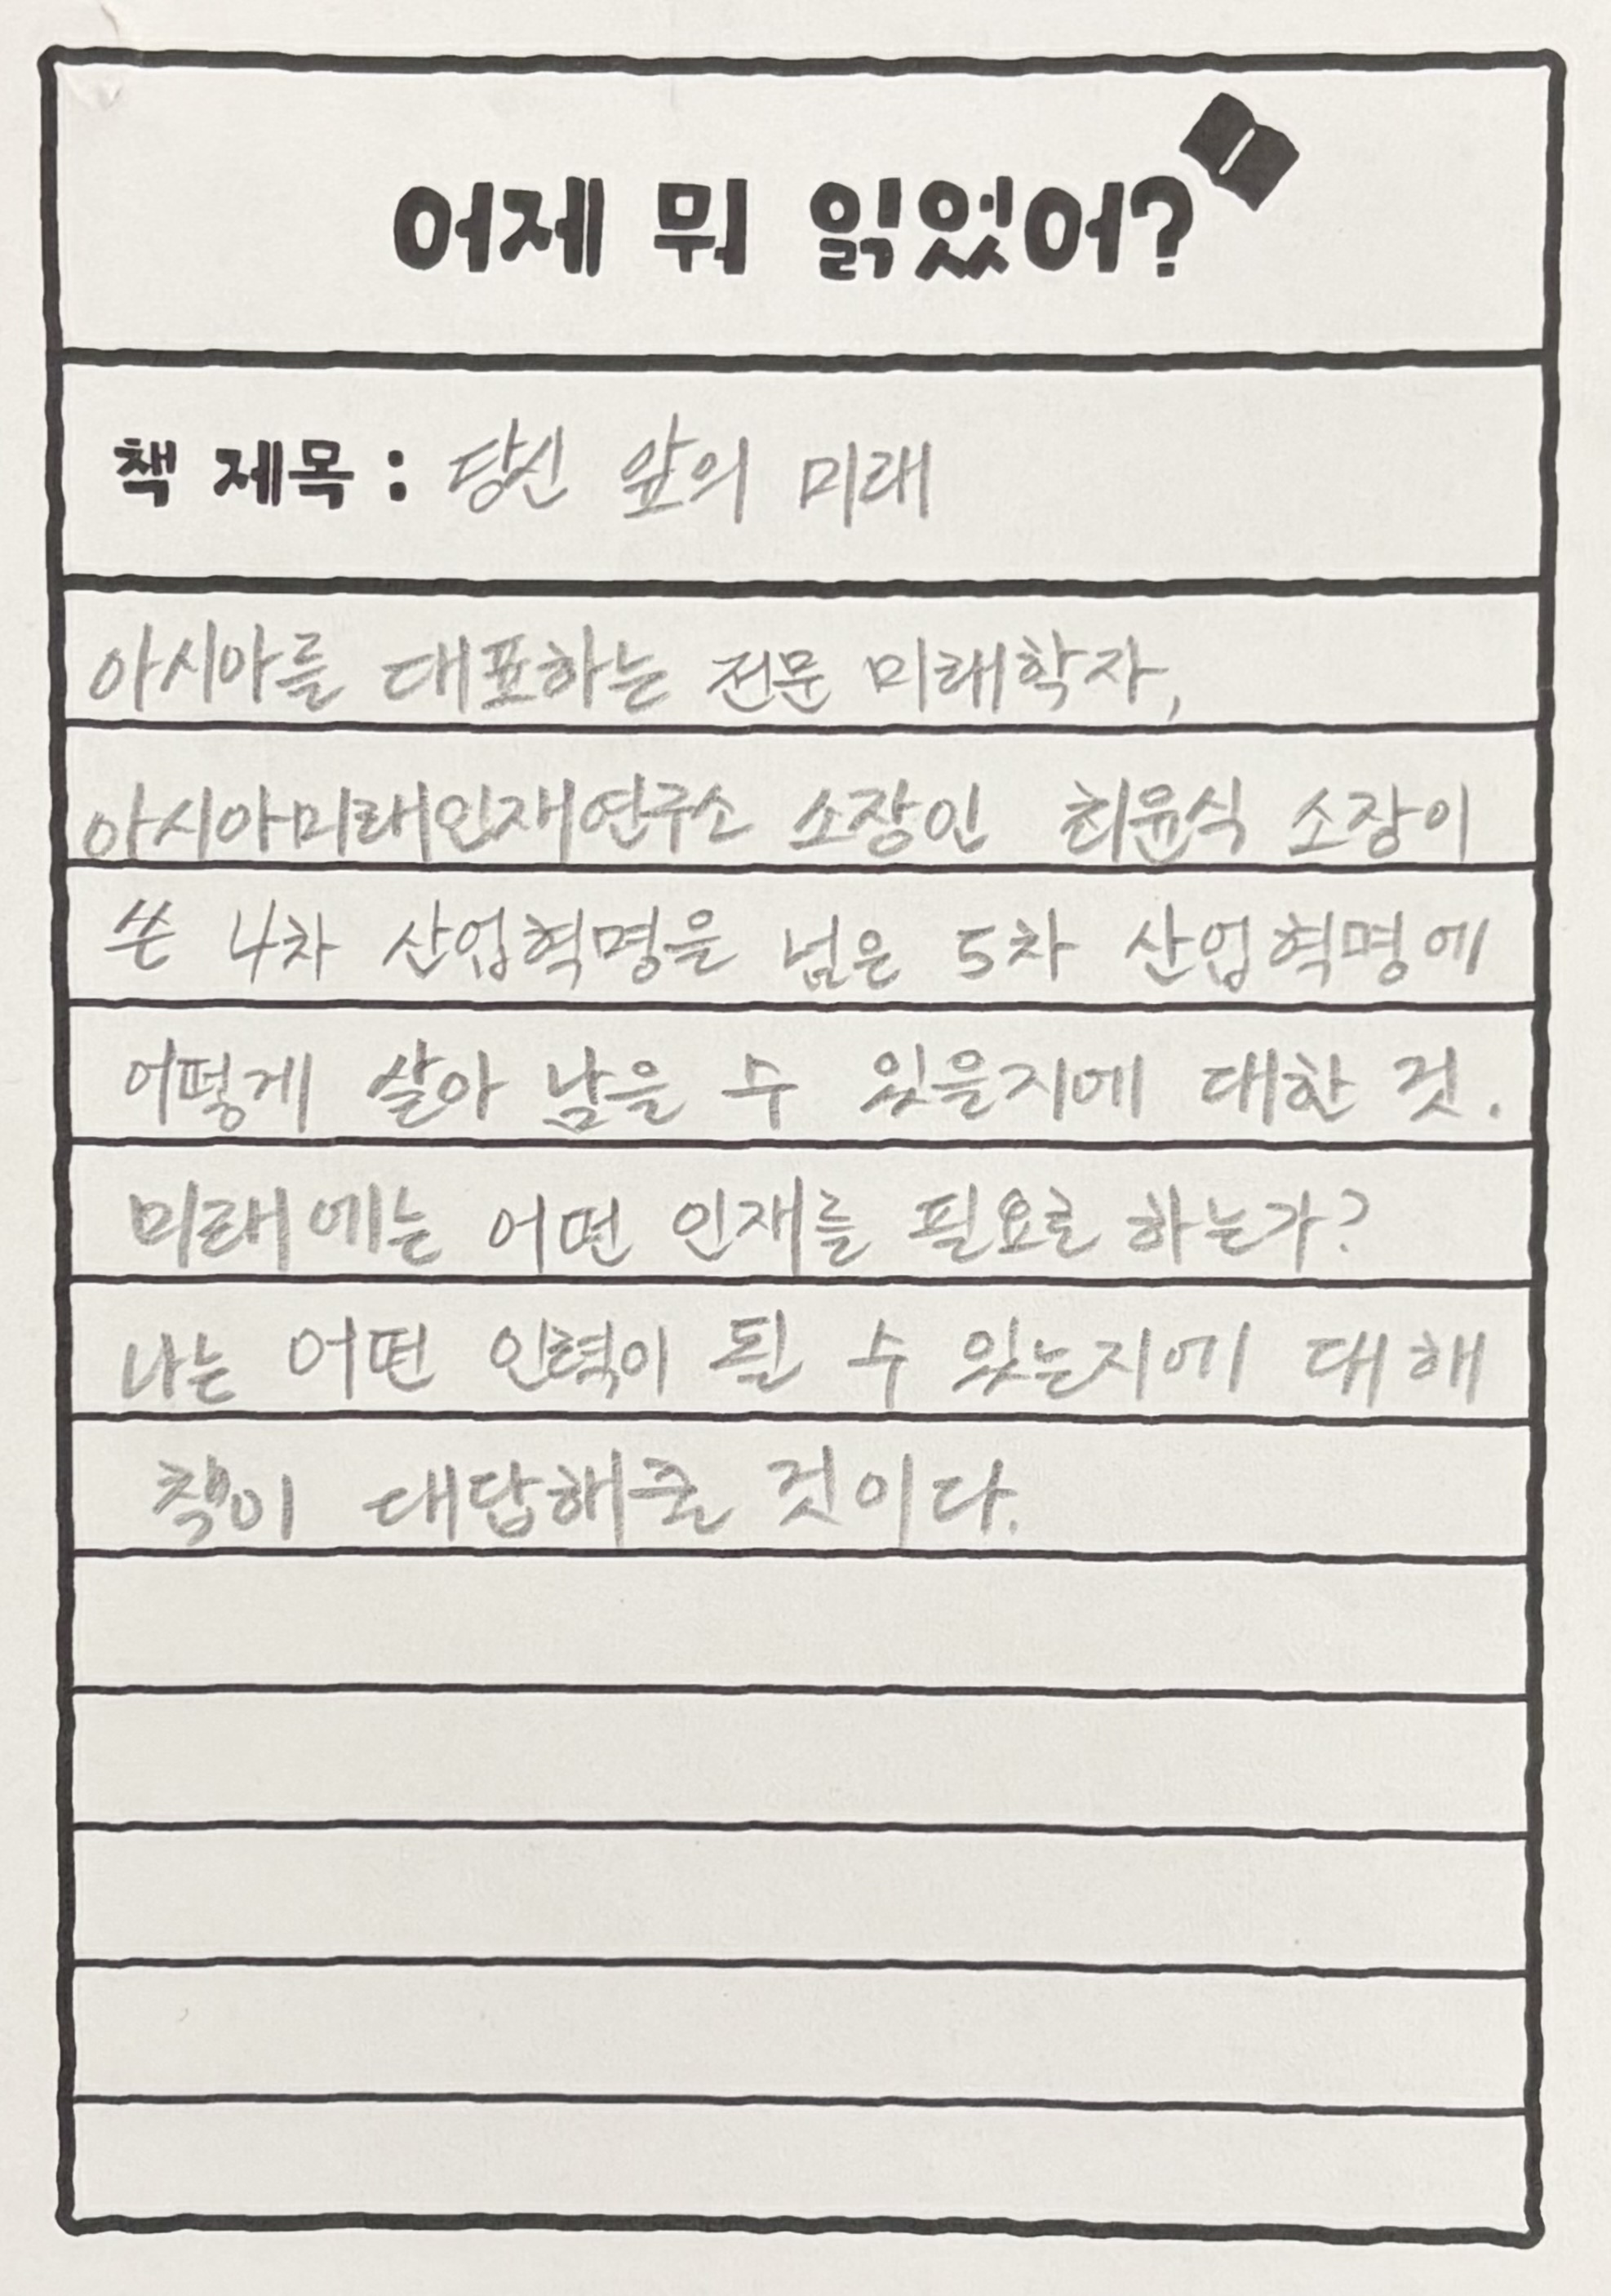 어제 뭐 읽었어?
책 제목 : 당신 앞의 미래
아시아를 대표하는 전문 미래학자,
아시아미래인재연구소 소장인 최윤식 소장이
쓴 4차 산업혁명을 넘은 5차 산업혁명에
어떻게 살아 남을 수 있을지에 대한 것.
미래에는 어떤 인재를 필요로 하는가?
나는 어떤 인력이 될 수 있는지에 대해
책이 대답해줄 것이다.